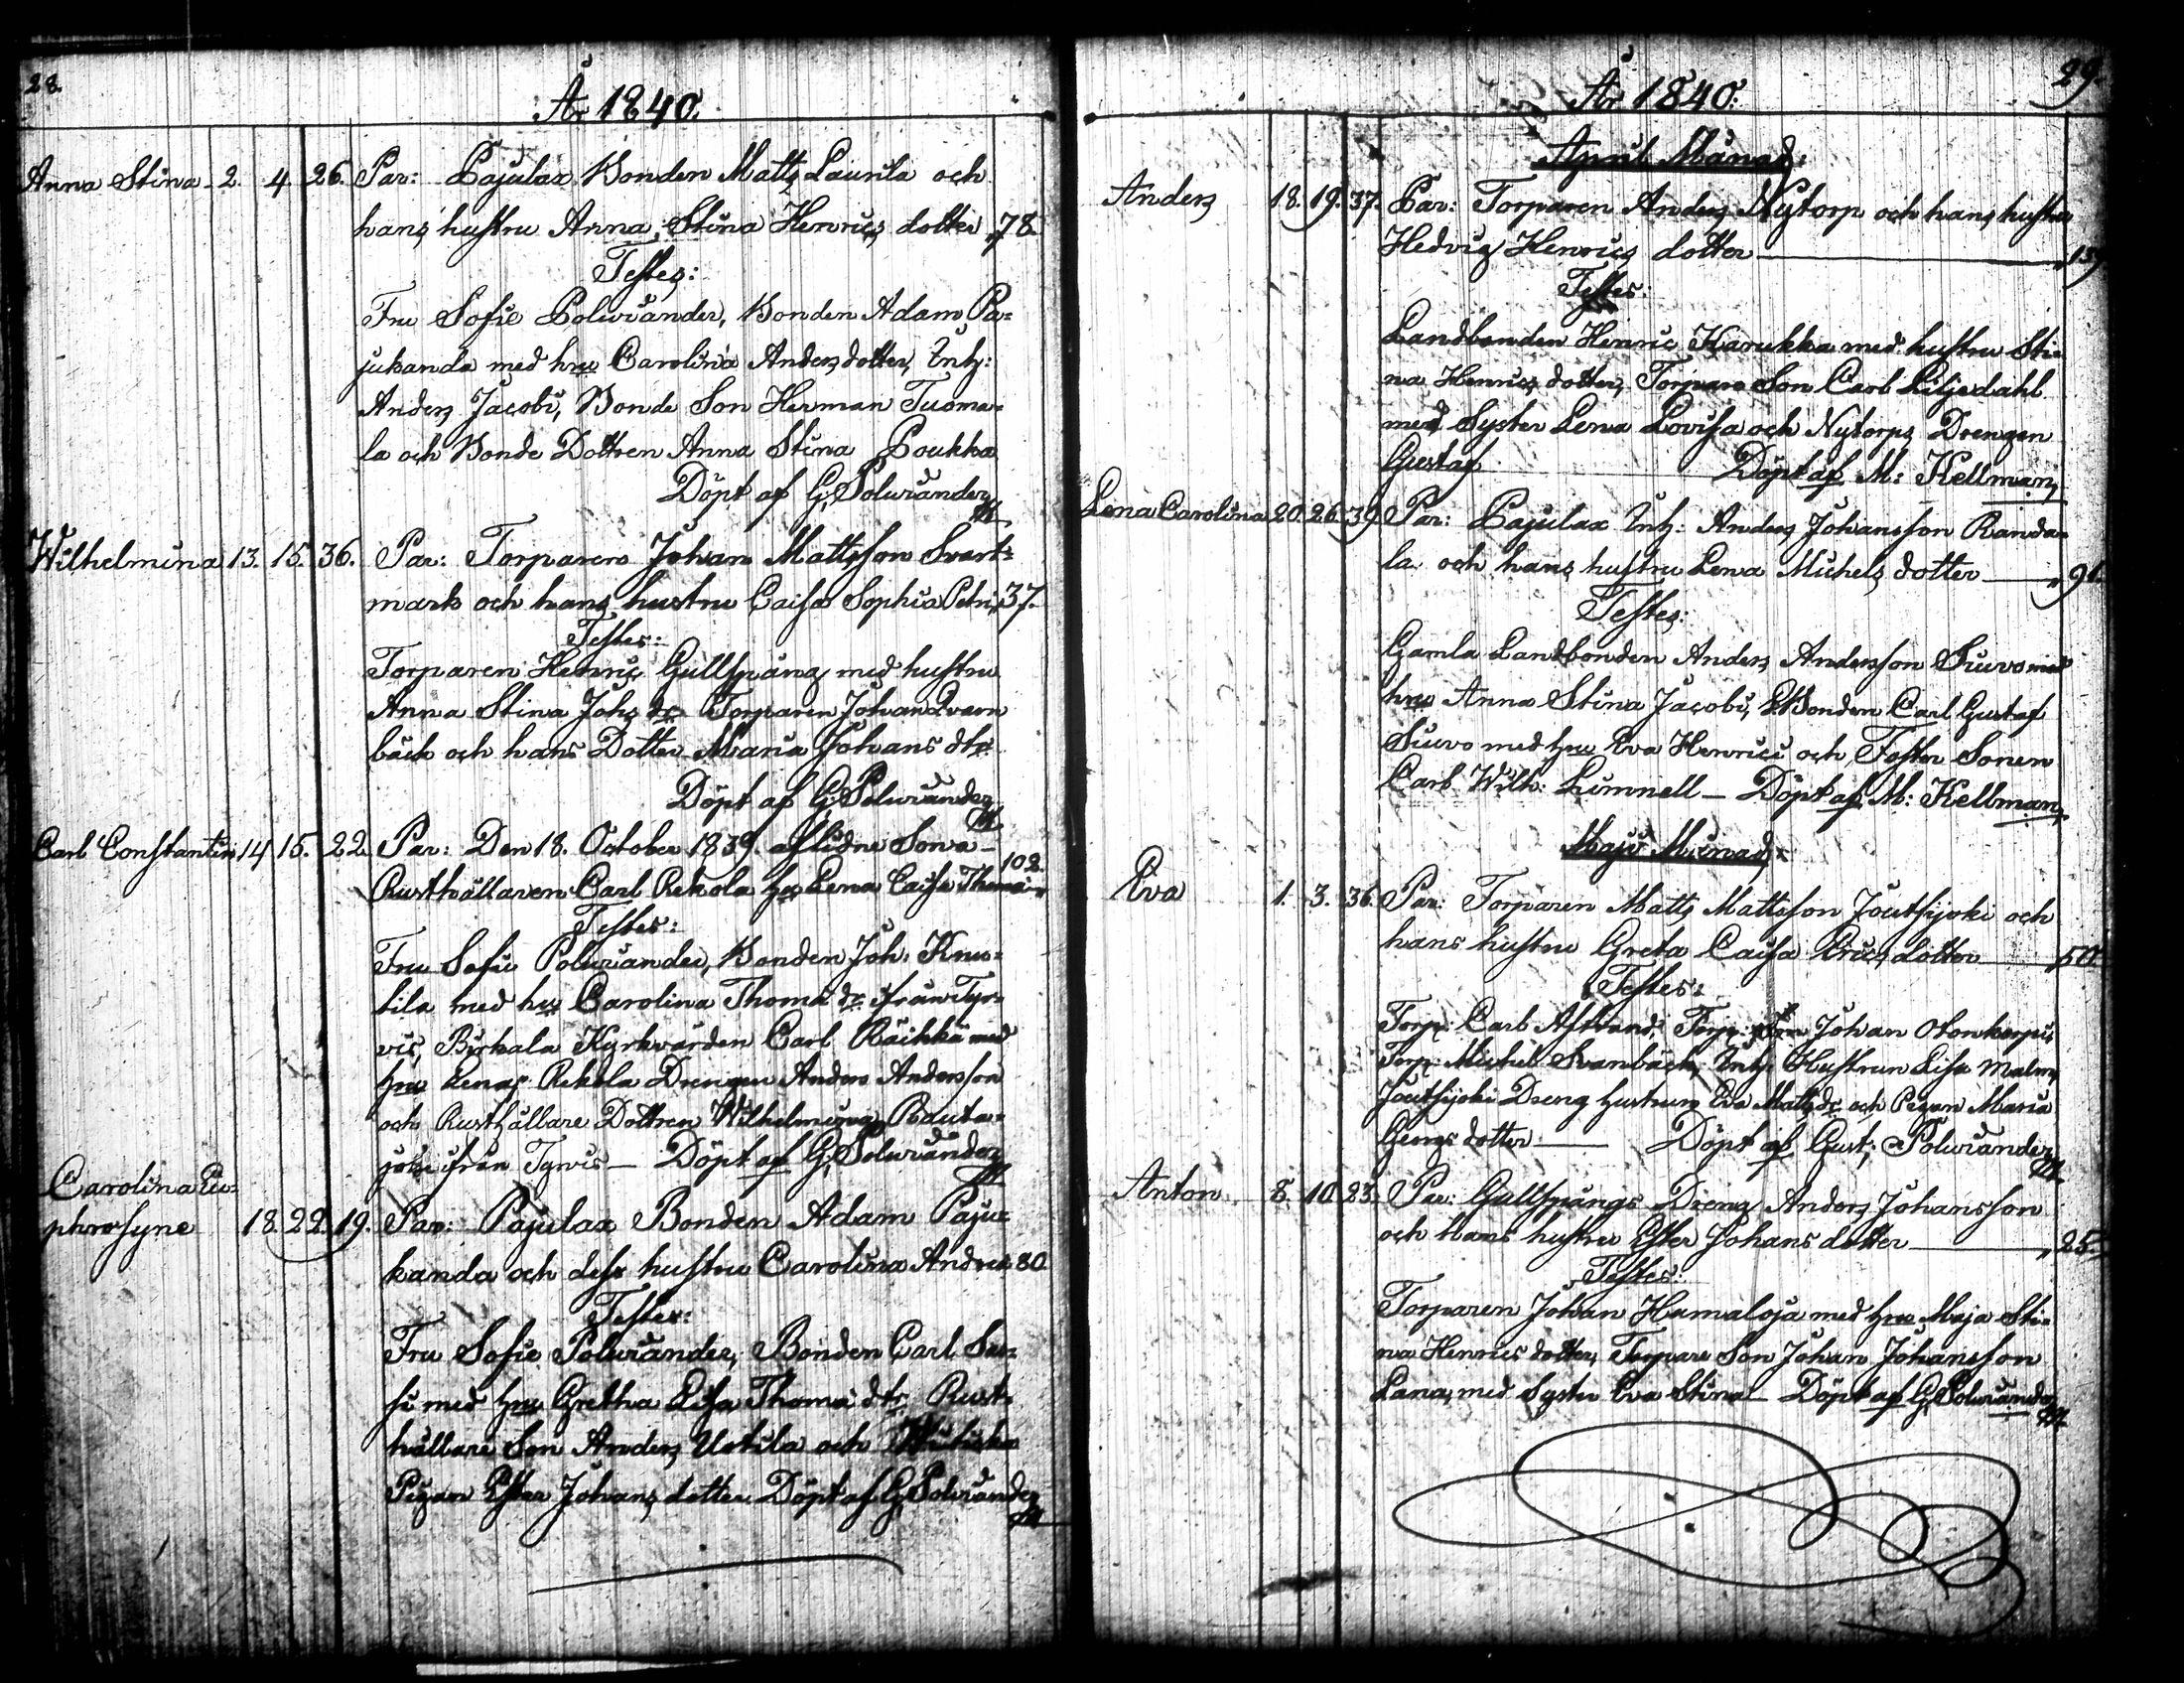 28.
År 1840.
Anna Stina 2. 4. 26. Par: Pajulax Bonden Matts Laurila och
hans hustru Anna Stina Henrics dotter 78.
Testes:
Fru Sofie Polviander, Bonden Adam Pa=
jukanda med hru Carolina Anders dotter, Inh:
Anders Jacobi, Bonde Son Herman Tuoma=
la och Bonde Dottren Anna Stina Poukka
Döpt af G. Polviander
Wilhelmina 13. 15. 36. Par: Torparen Johan Mattsson Svart=
mark och hans hustru Caisa Sophia Petri 37.
Testes:
Torparen Henric Gullspång med hustru
Anna Stina Johs dr Torparen Johan Qvarn
bäck och hans Dotter Maria Johans dtr
Döpt af G. Polviander
Carl Constantin 14 15. 22. Par: Den 18. October 1839. aflidne Sona
Rusthållaren Carl Rekola hru Lena Caisa Thomæ 102.
Testes:
Fru Sofie Polviander, Bonden Joh. Knu=
tila med hru Carolina Thomæ dr ifrån Tyr=
vis, Birkala Kyrkvärden Carl Räikkä med
hru Lena, Rekola Drengen Anders Andersson
och Rusthållare Dottren Wilhelmina Rauta=
joki ifrån Tyrvis — Döpt af G. Polviander
Carolina Eu=
phrosyne 18. 22. 19. Par: Pajulax Bonden Adam Paju=
kanda och dess hustru Carolina Andreæ 80
Testes:
Fru Sofie Polviander, Bonden Carl
med hru Gretha Lisa Thomæ dtr Rust=
hållare Son Anders Uotila och
Pigan Ester Johans dotter Döpt af G. Polviander
29.
År 1840.
April Månad:
Anders 18. 19. 37. Par: Torparen Anders Nytorp och hans hustru
Hedvig Henrics dotter — 139
Testes:
Landbonden Henric Karukka med hustru Sti=
na Henrics dotter, Torpare Son Carl Liljedahl
med Syster Lena Lovisa och Nytorps Drengen
Gustaf Döpt af M: Kellman
Lena Carolina 20. 26. 39. Par: Pajulax Inh: Anders Johansson Randa=
la och hans hustru Lena Michels dotter — 91.
Testes:
Gamla Landbonden Anders Andersson Suvo med
hru Anna Stina Jacobi, LBonden Carl Gustaf
Suvo med hru Eva Henrici och Foster Sonen
Carl Wilh: Limnell — Döpt af M: Kellman
Maji Månad
Eva 1. 3. 36. Par: Torparen Matts Mattsson Joutsijoki och
hans hustru Greta Caisa Erics dotter — 50
Testes:
Torp: Carl Åstrand, Torp: Son Johan Otonkorpi,
Torp: Michel Svanbäck, Inh: Hustrun Lisa Malm,
Joutsijoki Dreng hustrun Eva Matts dr och Pigan Maria
Georgs dotter — Döpt af Gust: Polviander
Anton 8. 10. 23. Par: Gullspångs Dreng Anders Johansson
och hans hustru Ester Johans dotter — 25.
Testes:
Torparen Johan Hamaloja med hru Maja Sti=
na Henrics dotter, Torpare Son Johan Johansson
Lana, med Syster Eva Stina — Döpt af G. Polviander